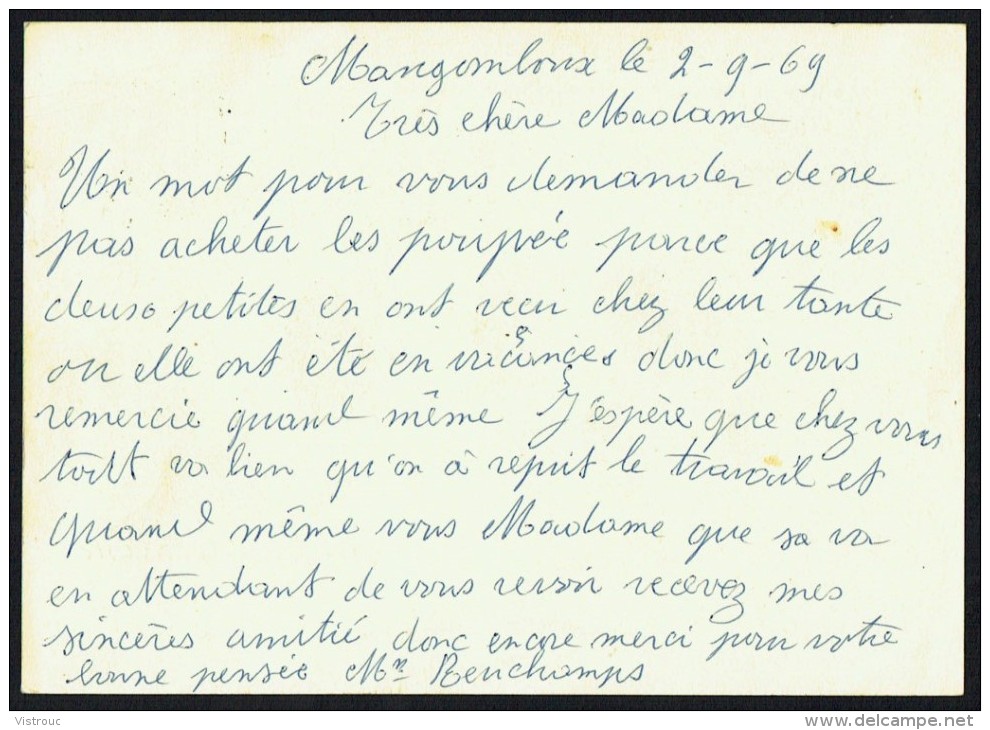 Mangombroux le 2-9-69
Très chère Madame
Un mot pour vous demander de ne
pas acheter les poupée parce que les
deuse petites en ont recu chez leur tante
ou elle ont été en vacances donc je vous
remercie quand même J'espère que chez vous
tout va bien qu'on à repit le travail et
quand même vous Madame que sa va
en attendant de vous revoir recevez mes
sincères amitié donc encore merci pour votre
bonne pensée Mm Renchamps
Vistrouc
www.delcampe.net